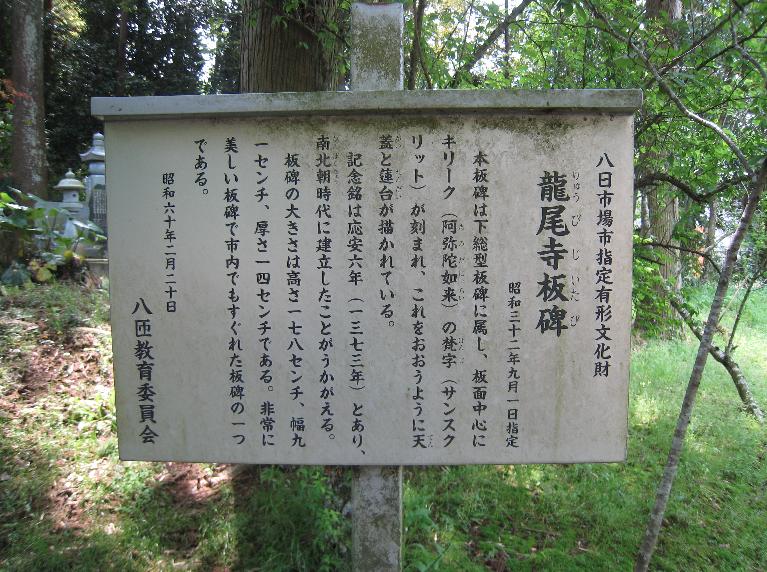 八日市場市指定有形文化財
龍尾寺板碑
りゅうびじいたび
昭和三十二年九月一日指定
本板碑は下総型板碑に属し、板面中心に
キリーク（阿弥陀如来）の梵字（サンスク
リット）が刻まれ、これをおおうように天
蓋と蓮台が描かれている。
記念銘は応安六年（一三七三年）とあり、
南北朝時代に建立したことがうかがえる。
板碑の大きさは高さ一七八センチ、幅九
一センチ、厚さ一四センチである。非常に
美しい板碑で市内でもすぐれた板碑の一つ
である。
昭和六十年二月二十日
八匝教育委員会